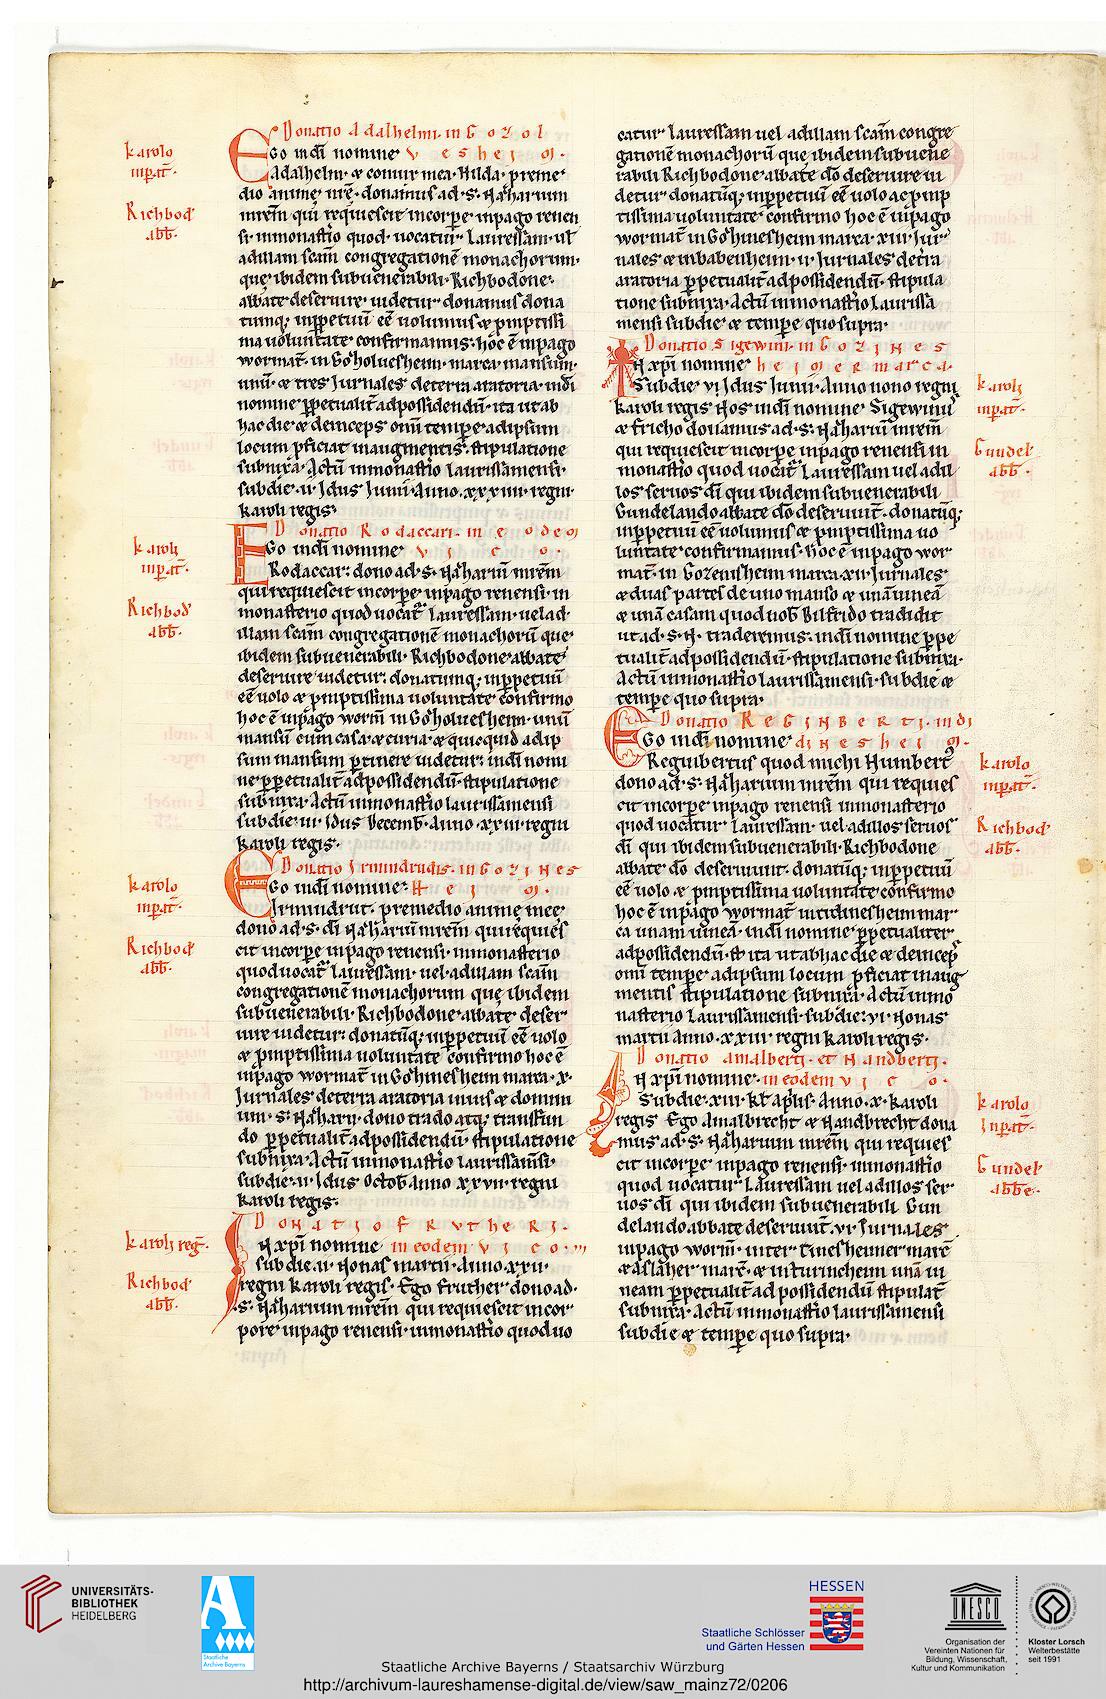 Donatio Adalhelmi. in Gozol
Ego in dī nomine veshei m.
karolo
inp̄at̄.
Adalhelm. & coniux mea. Hilda. p̄ reme
dio animę. nr̄ę. donamus ad. s. N̄aharium
Richbod
abb̄.
mr̄em qui requiescit in corp̄e. in pago renen
si. in monast̄io quod. uocatur Lauressam. ul̄
ad illam sc̄am congregationē monachorum.
quę ibidem sub uenerabili. Richbodone.
abbate deseruire. uidetur donamus dona
tumq; in p̄petuū eē uolumus & p̄mptissi
ma uoluntate confirmamus. hoc ē in pago
wormat̄. in Gozholuesheim. marca. mansum.
unū. & tres Jurnales de terra aratoria. in dī
nomine p̄petualit̄ ad possidendū. ita ut ab
hac die & deinceps om̄i temp̄e. ad ipsum
locum p̄ficiat in augmentis. stipulatione
subnixa. Actū in monast̄io Laurissamensi.
sub die. ii. Idus Junii. Anno. xxxiiii. regni.
karoli regis.
Donatio Rodaccari. in eodem
Ego in dī nomine vico.
karoli
inp̄at̄.
Rodaccar. dono ad. s. N̄aharii mr̄em
qui requiescit in corp̄e. in pago renensi. in
Richbod
abb̄.
monasterio quod uocat̄ Lauressam. uel ad.
illam sc̄am congregationē monachorū quę
ibidem sub uenerabili. Richbodone abbate
deseruire uidetur. donatumq; in p̄petuū
eē uolo & p̄mptissima uoluntate confirmo
hoc ē in pago worm̄ in Gozholuesheim. unū
mansū cum casa & curia. & quicquid ad ip
sum mansum p̄tinere uidetur. in dī nomi
ne p̄petualit̄ ad possidendū. stipulatione
subnixa. Actū in monast̄io laurissamensi
sub die. iii. Idus Decemb̄. anno. xxiii. regni
karoli regis.
Donatio Irmindrudis. in Gozines
Ego in dī nomine. Heim.
karolo
inp̄at̄.
Irmindrut. p̄ remedio animę meę
dono ad. s. dī N̄aharium mr̄em qui requies
Richbod
abb̄.
cit in corp̄e in pago renensi. in monasterio
quod uocat̄ lauressam. uel. ad illam sc̄am
congregationē monachorum quę ibidem
sub uenerabili. Richbodone abbate deser
uire uidetur. donatūq; in p̄petuū eē uolo
& p̄mptissima uoluntate confirmo hoc ē
in pago wormat̄ in Gozhinesheim marca. x.
Jurnales de terra aratoria iuris & domini
um. s. N̄aharii. dono trado atq; transfun
do p̄petualit̄ ad possidendū. stipulatione
subnixa. Actū in monast̄io laurissam̄si.
sub die. ii. Idus octob̄. anno xxvii. regni
karoli regis.
Donatio Frutheri.
In xp̄i nomine in eodem vico.
karoli reg̅.
sub die. ii. Nonas martii. Anno. xxii.
Richbod
abb̄.
regni karoli regis. Ego Fruther dono ad.
s. N̄aharium mr̄em qui requiescit in cor
pore in pago renensi. in monast̄io quod uo
catur lauressam uel ad illam sc̄am congre
gationē monachorū quę ibidem sub uene
rabili Richbodone abbate dō deseruire ui
detur donatūq; in p̄petuū eē uolo ac p̄mp
tissima uoluntate confirmo hoc ē in pago
wormat̄ in Gozhinesheim marca. xiii. Jur
nales & in babenheim. ii. Jurnales de t̄ra
aratoria p̄petualit̄ ad possidendū. stipula
tione subnixa. Actū in monast̄io Laurissa
mensi sub die & temp̄e quo supra.
Donatio Sigewini. in Gozines
In xp̄i nomine heimermarca.
karoli
inp̄at̄.
Sub die. vi. Idus Junii. Anno nono regni
karoli regis Nos in dī nomine Sigewini
& Fricho donamus ad. s. N̄aharium mr̄em
Gundel
abb̄.
qui requiescit in corp̄e in pago renensi in
monastio quod uocat̄ Lauressam uel ad il
los seruos dī qui ibidem sub uenerabili
Gundelando abbate dō deseruiunt. donatūq;
in p̄petuū eē uolumus & p̄mptissima uo
luntate confirmamus. hoc ē in pago wor
mat̄. in Gozenisheim marca. xii. Jurnales
& duas partes de uno manso & unā uineā
& unā casam quod nob̄ Bilfrido tradidit
ut ad. s. N. traderemus. in dī nomine p̄pe
tualit̄ ad possidendū. stipulatione subnixa.
Actū in monast̄io laurissamensi. sub die &
temp̄e quo supra.
Donatio Reginberti. in di
Ego in dī nomine dinesheim.
karolo
inp̄at̄.
Reginbertus quod michi Hunbert
dono ad. s. N̄aharium mr̄em qui requies
cit in corp̄e in pago renensi in monasterio
Richbod
abb̄.
quod uocatur lauressam. uel ad illos seruos
dī qui ibidem sub uenerabili. Richbodone
abbate dō deseruiunt. donatūq; in p̄petuū
eē uolo & p̄mptissima uoluntate confirmo
hoc ē in pago wormat̄ in tidinesheim mar
ca unam uineā. in dī nomine p̄petualiter
ad possidendū. & ita ut ab hac die & deincep̄
om̄i temp̄e ad ipsum locum p̄ficiat in aug
mentis stipulatione subnixa. Actū in mo
nasterio laurissamensi. sub die. vi. Nonas
martii anno. xxiii. regni karoli regis.
Donatio amalberti. et Nandberti.
In xp̄i nomine. in eodem vico.
karolo
Inp̄at̄.
Sub die. xiii. kl̄ ap̄lis. Anno. x. karoli
regis. Ego Amalbrecht & Nandbrecht dona
mus ad. s. N̄aharium mr̄em qui requies
Gundel
abbe.
cit in corp̄e in pago renensi. in monast̄io
quod uocatur lauressam uel ad illos ser
uos dī qui ibidem sub uenerabili Gun
delando abbate deseruiunt. vi. Jurnales
in pago worm̄. inter tinesheimer marc̄
& aslaher marc̄. & in turincheim unā ui
neam p̄petualit̄ ad possidendū stipulat̄
subnixa. Actū in monast̄io laurissamensi
sub die & temp̄e quo supra.
UNIVERSITÄTS-
BIBLIOTHEK
HEIDELBERG
Staatliche
Archive Bayerns
HESSEN
Staatliche Schlösser
und Gärten Hessen
UNESCO
Organisation der
Vereinten Nationen für
Bildung, Wissenschaft,
Kultur und Kommunikation
Kloster Lorsch
Welterbestätte
seit 1991
Staatliche Archive Bayerns / Staatsarchiv Würzburg
http://archivum-laureshamense-digital.de/view/saw_mainz72/0206